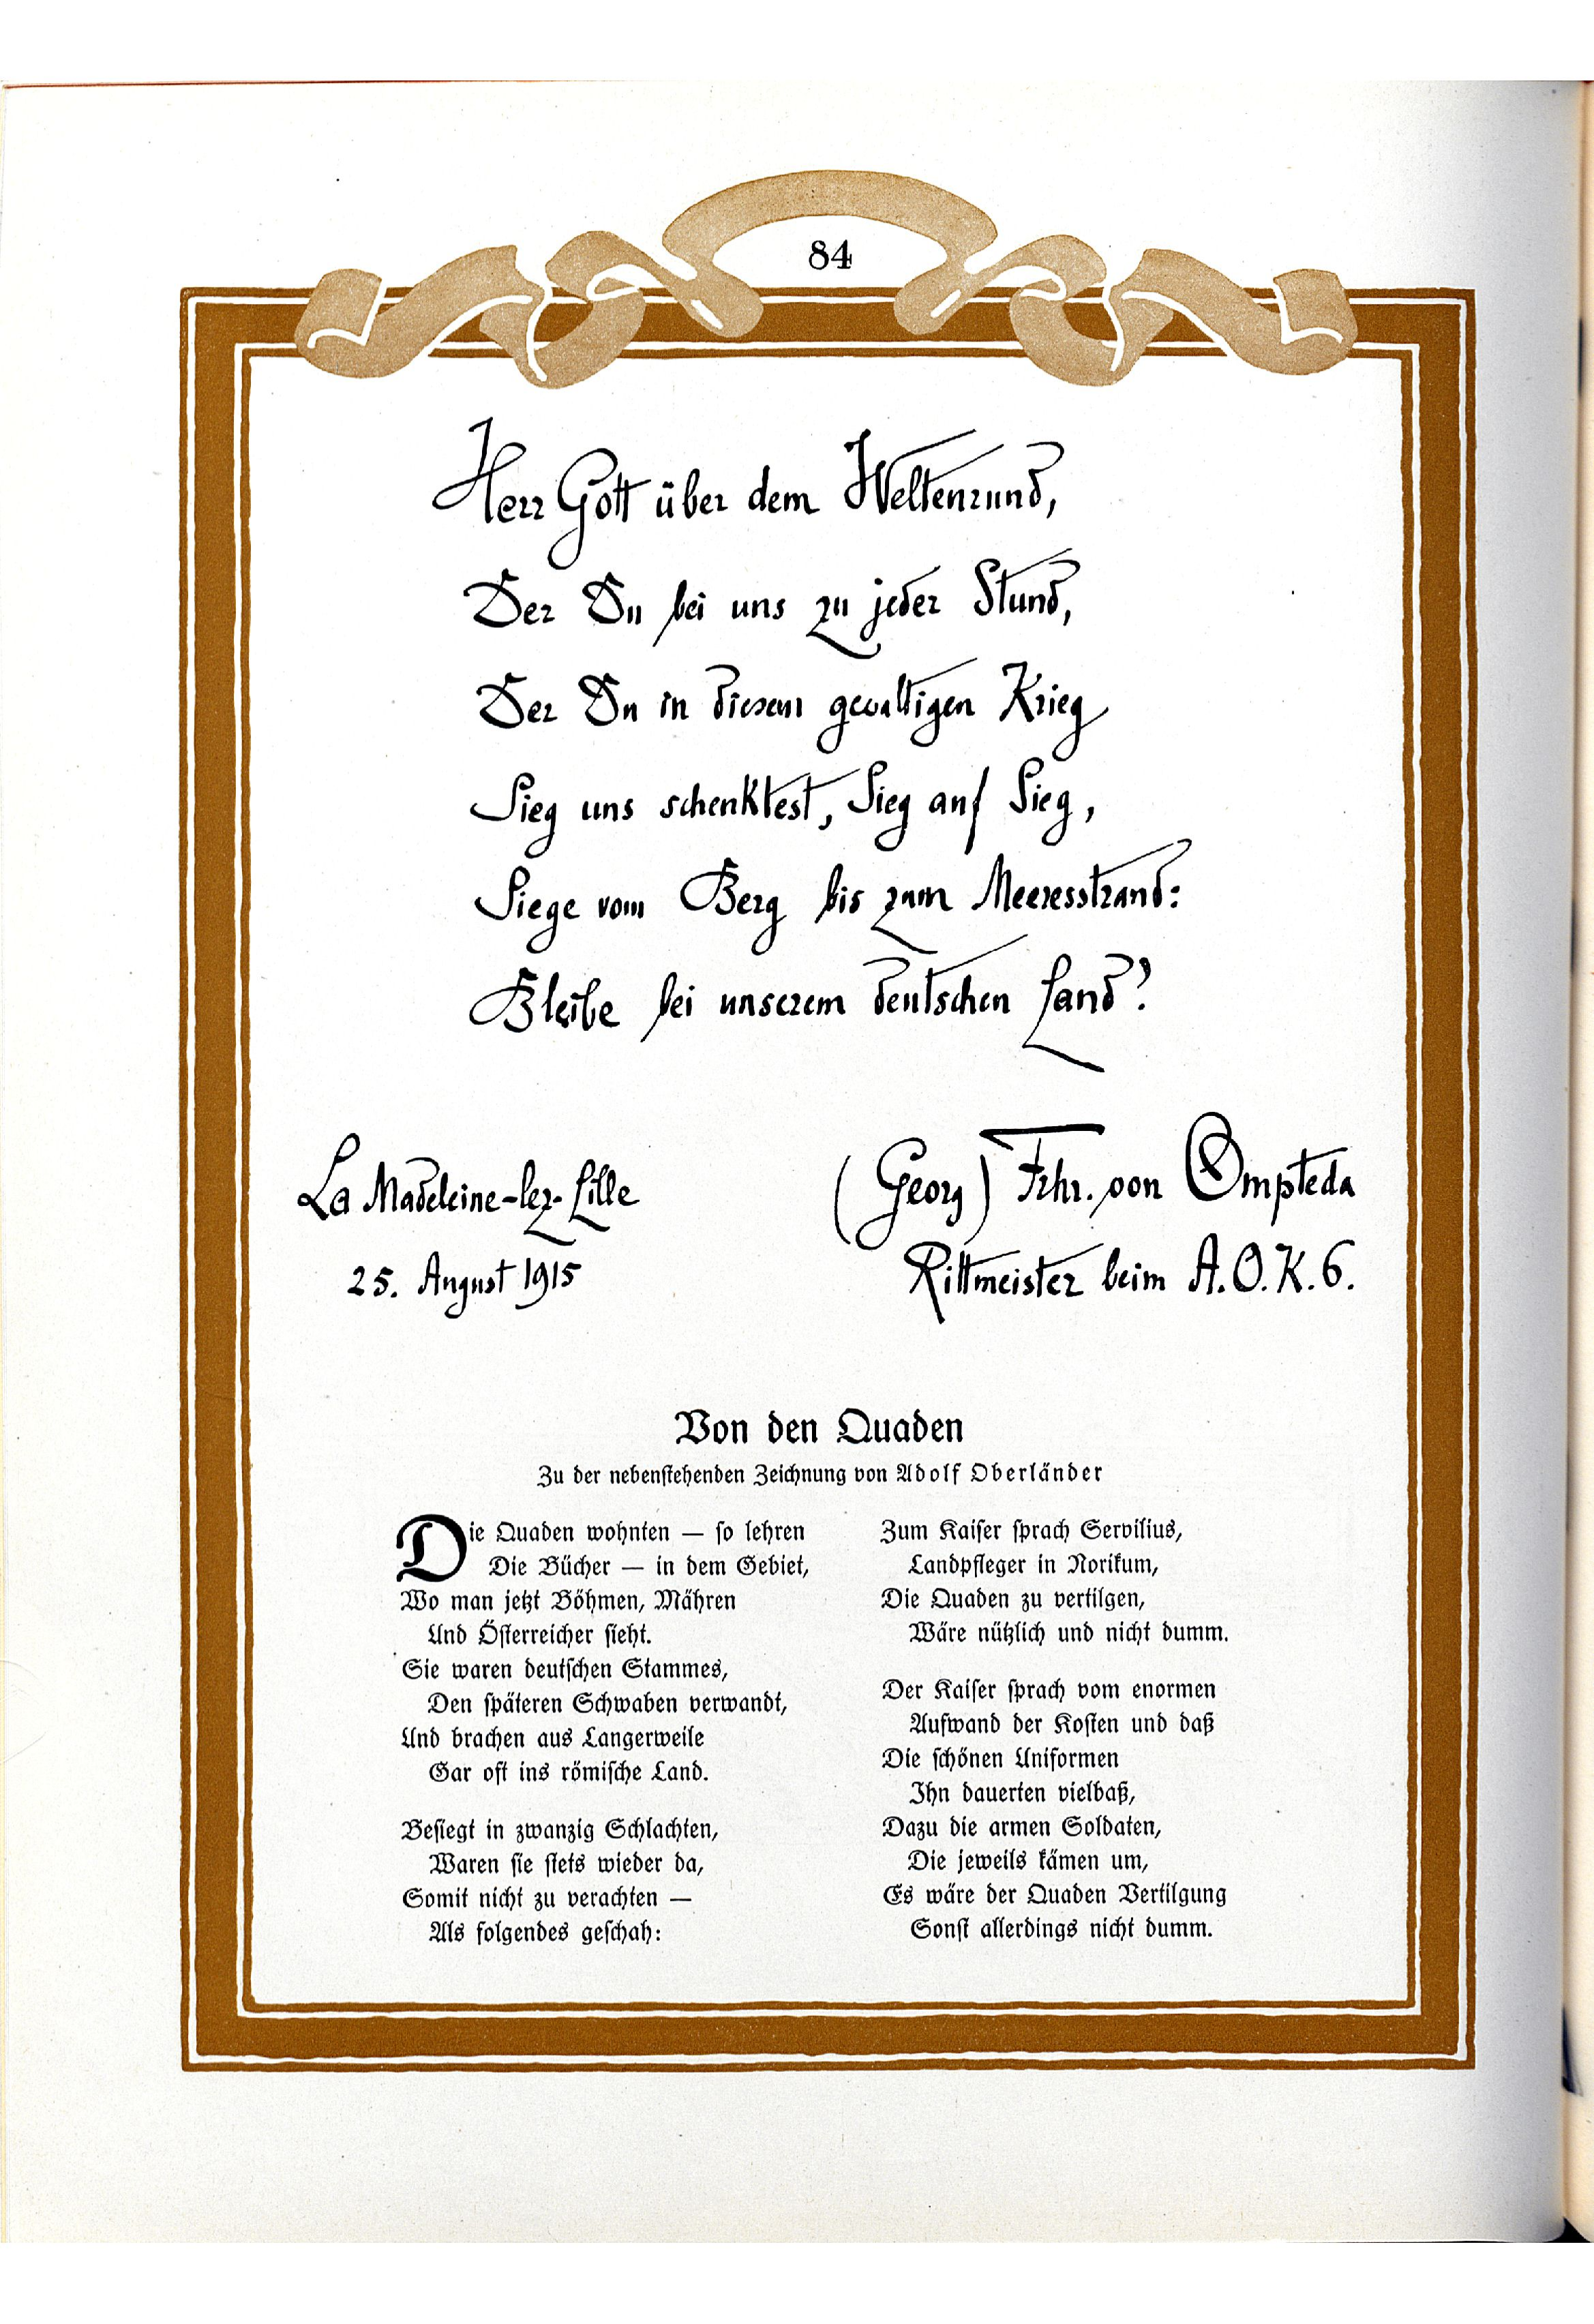 84
Herr Gott über dem Weltenrund,
Der Du bei uns zu jeder Stund,
Der Du in diesem gewaltigen Krieg
Sieg uns schenktest, Sieg auf Sieg,
Siege vom Berg bis zum Meeresstrand:
Bleibe bei unserem deutschen Land?
La Madeleine-lez-Lille
25. August 1915
(Georg) Frhr. von Ompteda
Rittmeister beim A.O.K.6.
Von den Quaden
Zu der nebenstehenden Zeichnung von Adolf Oberländer
Die Quaden wohnten — so lehren
Die Bücher — in dem Gebiet,
Wo man jetzt Böhmen, Mähren
Und Österreicher sieht.
Sie waren deutschen Stammes,
Den späteren Schwaben verwandt,
Und brachen aus Langerweile
Gar oft ins römische Land.
Besiegt in zwanzig Schlachten,
Waren sie stets wieder da,
Somit nicht zu verachten —
Als folgendes geschah:
Zum Kaiser sprach Servilius,
Landpfleger in Norikum,
Die Quaden zu vertilgen,
Wäre nützlich und nicht dumm.
Der Kaiser sprach vom enormen
Aufwand der Kosten und daß
Die schönen Uniformen
Ihn dauerten vielbaß,
Dazu die armen Soldaten,
Die jeweils kämen um,
Es wäre der Quaden Vertilgung
Sonst allerdings nicht dumm.